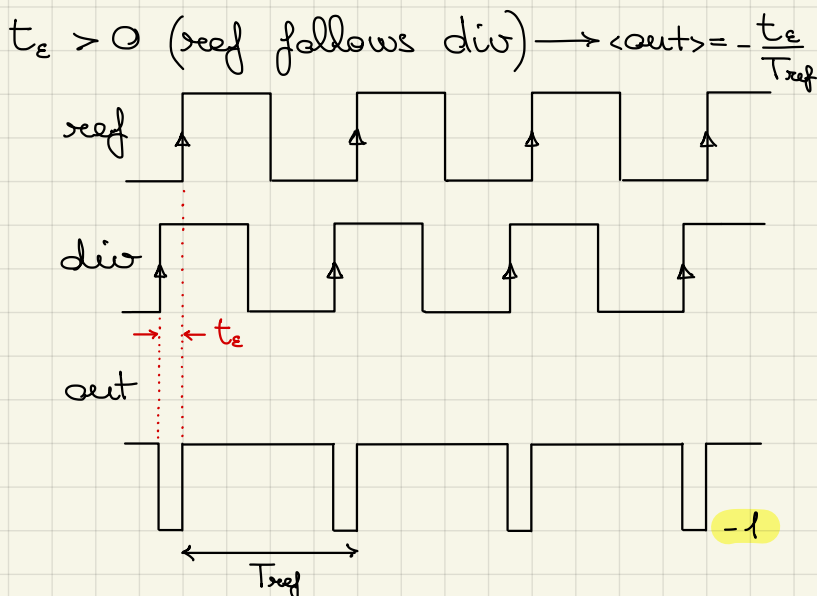 tε > 0 (ref follows div) → <out> = - tε/Tref
ref
div
tε
out
-1
Tref